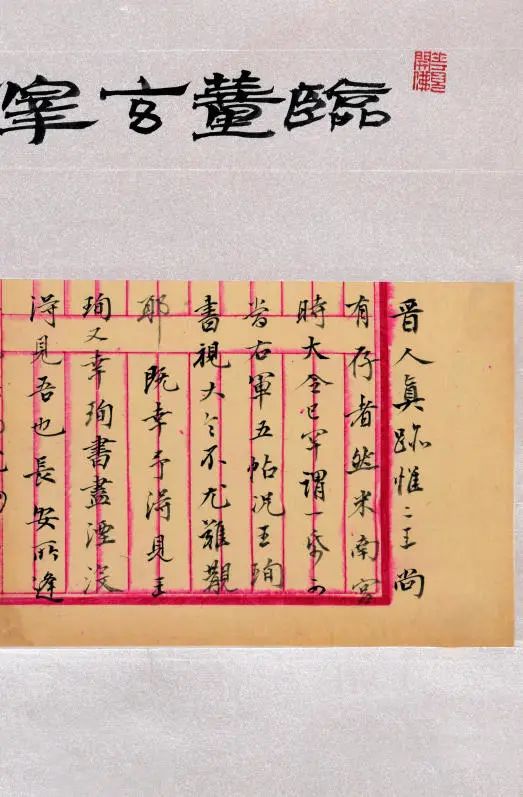 臨董玄宰
晉人眞跡惟二王尚
有存者然米南宮
時大令已罕謂一帋可
當右軍五帖況王珣
書視大令不尤難覯
耶既幸予得見王
珣又幸珣書盡湮沒
得見吾也長安所逢